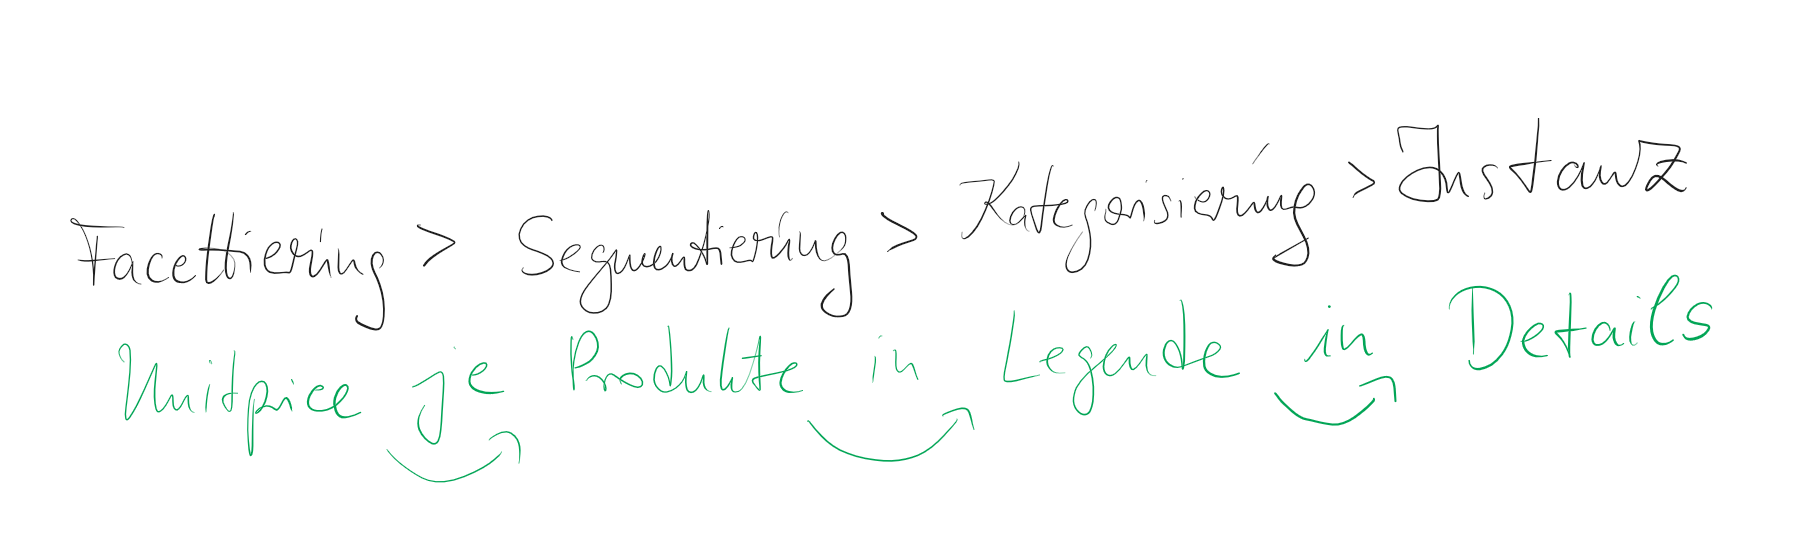 Facettierüng > Segmentierüng > Kategorisierüng > Instanz
Unitprice je Produkte in Legende in Details